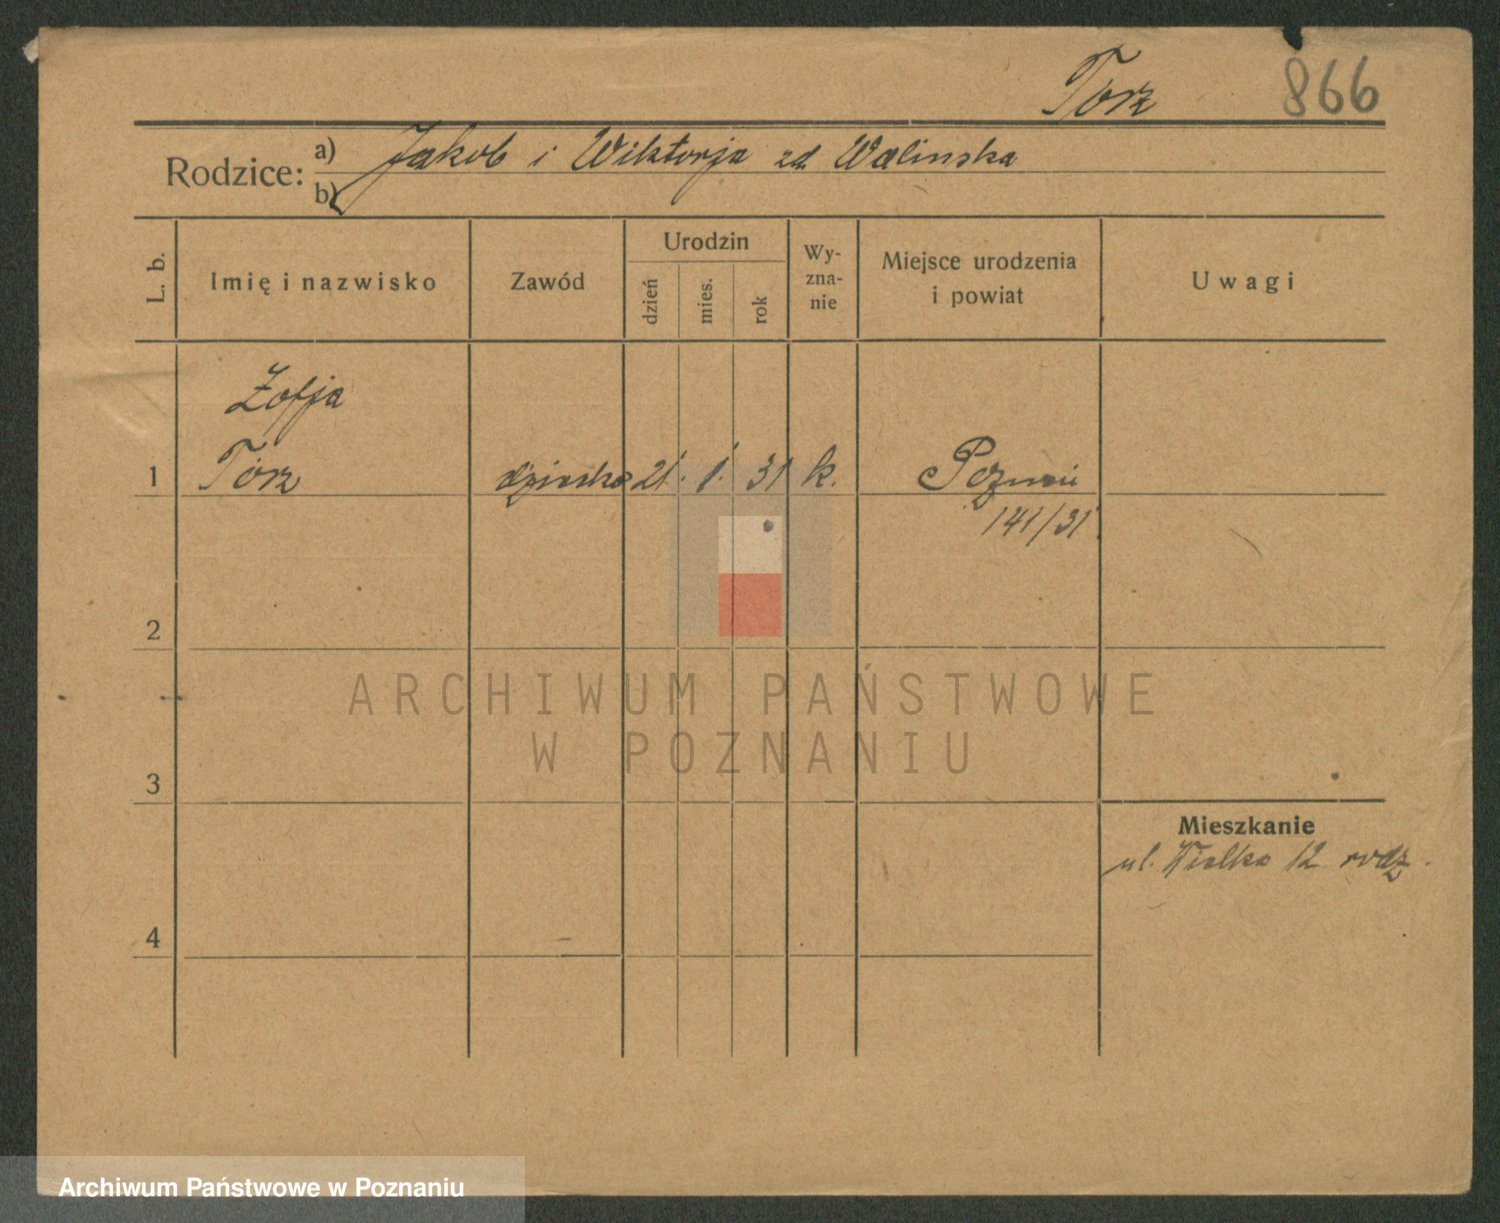 Tórz 866
Rodzice: a) Jakob i Wiktorja zd. Walinska
b)
L. b.
Imię i nazwisko
Zawód
Urodzin
dzień
mies.
rok
Wy-
zna-
nie
Miejsce urodzenia
i powiat
Uwagi
Zofja
1 Tórz dziecko 21. 1. 31 k. Poznań
141/31.
2
3
4
Mieszkanie
ul. Wielka 12 rodz.
ARCHIWUM PAŃSTWOWE
W POZNANIU
Archiwum Państwowe w Poznaniu